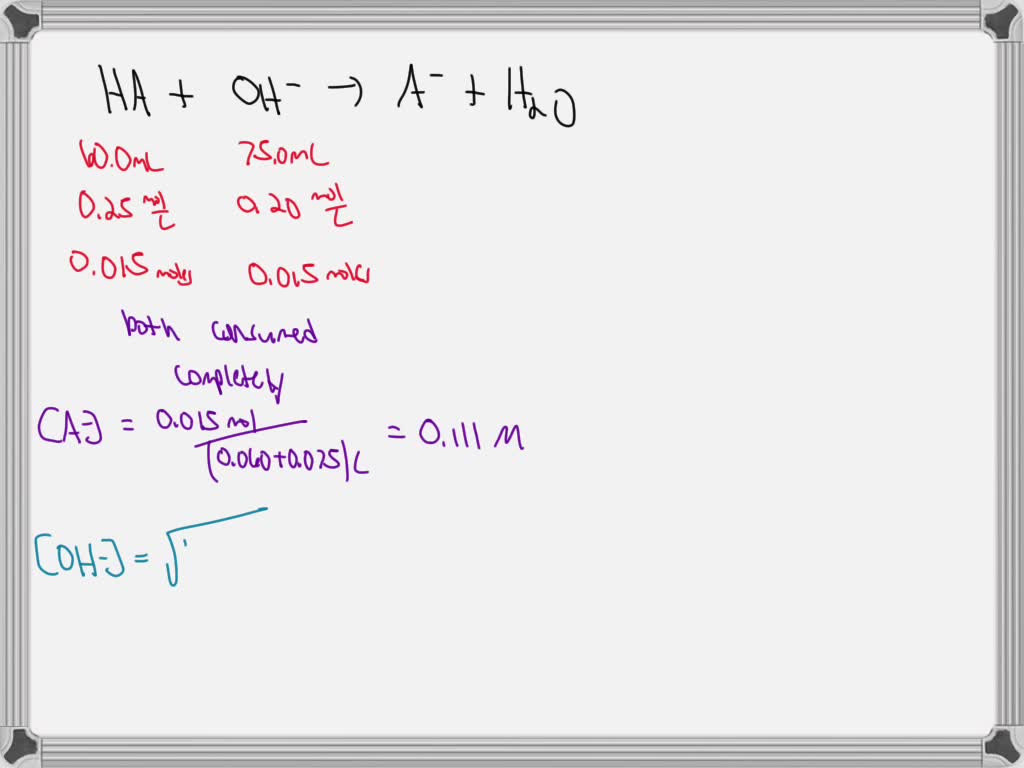 HA + OH⁻ → A⁻ + H₂O
60.0mL 75.0mL
0.25 mol/L 0.20 mol/L
0.015 moles 0.015 moles
both consumed
completely
[A⁻] = 0.015 mol / (0.060+0.075)L = 0.111 M
[OH⁻] = √